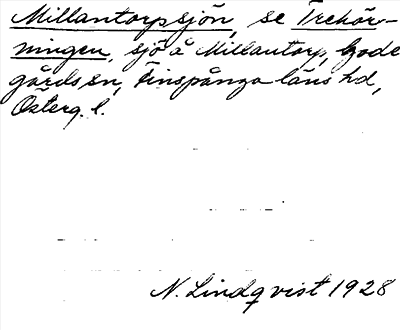 Millantorpssjön, se Trehör-
ningen, sjö å Millantorp, Gode
gårds sn, Finspånga läns hd,
Österg. l.
N. Lindqvist 1928